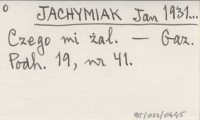 JACHYMIAK Jan 1931...
Czego mi żal. — Gaz.
Podh. 19, nr 41.